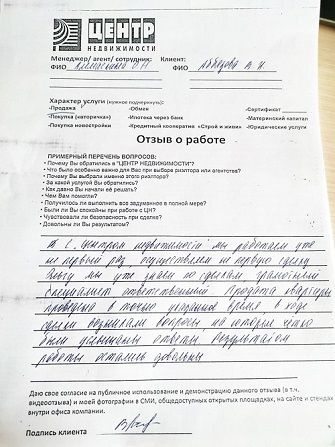 ЦЕНТР
НЕДВИЖИМОСТИ
Менеджер/ агент/ сотрудник: Клиент:
ФИО ФИО
Характер услуги (нужное подчеркнуть):
-Продажа -Обмен -Сертификат
-Покупка (вторички) -Ипотека через банк -Материнский капитал
-Покупка новостройки -Кредитный кооператив «Строй и живи» -Юридические услуги
Отзыв о работе
ПРИМЕРНЫЙ ПЕРЕЧЕНЬ ВОПРОСОВ:
• Почему Вы обратились в "ЦЕНТР НЕДВИЖИМОСТИ"?
• Что было особенно важно для Вас при выборе риэлтора или агентства?
• Почему Вы выбрали именно этого риэлтора?
• За какой услугой Вы обратились?
• Как давно Вы начали её решать?
• Чем Вам помогли?
• Получилось ли выполнить все задуманное в полной мере?
• Были ли Вы спокойны при работе с ЦН?
• Чувствовали ли безопасность при сделке?
• Довольны ли Вы результатом?
С Центром недвижимости мы работаем уже
не первый раз осуществляем не первую сделку
мы уже знаем по сделкам грамотный
специалист ответственный Продажа квартиры
проведена в точно указанное время в ходе
сделки возникали вопросы на которые четко
были услышаны ответы Результатом
работы остались довольны
Даю свое согласие на публичное использование и демонстрацию данного отзыва (в т.ч.
видеоотзыва) и моей фотографии в СМИ, общедоступных открытых площадках, на сайте и стендах
внутри офиса компании.
Подпись клиента